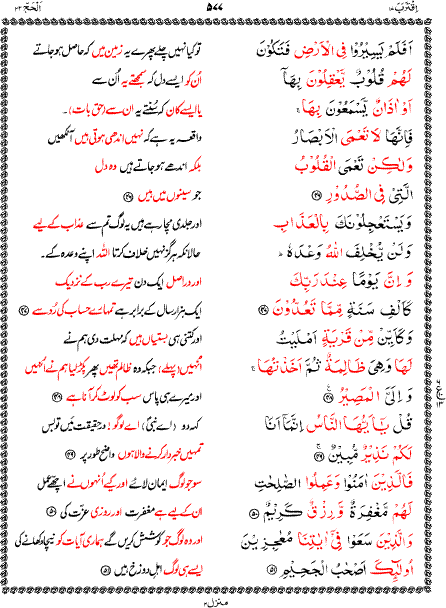 اِقْتَرَبَ ۱۷ ۵۷۷ اَلْحَجّ ۲۲
اَفَلَمْ یَسِیْرُوْا فِی الْاَرْضِ فَتَكُوْنَ تو کیا نہیں چلے پھرے یہ زمین میں کہ حاصل ہوجاتے
لَهُمْ قُلُوْبٌ یَّعْقِلُوْنَ بِهَاۤ اُن کو ایسے دل کہ سمجھتے یہ اُن سے
اَوْ اٰذَانٌ یَّسْمَعُوْنَ بِهَا ۚ یا ایسے کان کہ سُنتے یہ ان سے (حق بات)۔
فَاِنَّهَا لَا تَعْمَی الْاَبْصَارُ واقعہ یہ ہے کہ نہیں اندھی ہوتی ہیں آنکھیں
وَلٰكِنْ تَعْمَی الْقُلُوْبُ بلکہ اندھے ہوجاتے ہیں وہ دل
الَّتِیْ فِی الصُّدُوْرِ ۝۴۶ جو سینوں میں ہیں ۝۴۶
وَیَسْتَعْجِلُوْنَكَ بِالْعَذَابِ اور جلدی مچا رہے ہیں یہ لوگ تم سے عذاب کے لیے
وَلَنْ یُّخْلِفَ اللّٰهُ وَعْدَهٗ ؕ حالانکہ ہرگز نہیں خلاف کرتا اللہ اپنے وعدہ کے۔
وَاِنَّ یَوْمًا عِنْدَ رَبِّكَ اور دراصل ایک دن تیرے رب کے نزدیک
كَاَلْفِ سَنَةٍ مِّمَّا تَعُدُّوْنَ ۝۴۷ ایک ہزار سال کے برابر ہے تمہارے حساب کی رُو سے ۝۴۷
وَكَاَیِّنْ مِّنْ قَرْیَةٍ اَمْلَیْتُ اور کتنی ہی بستیاں ہیں کہ مہلت دی ہم نے
لَهَا وَهِیَ ظَالِمَةٌ ثُمَّ اَخَذْتُهَا ۚ اُنہیں (پہلے) جبکہ وہ ظالم تھیں پھر پکڑ لیا ہم نے اُنہیں
وَ اِلَیَّ الْمَصِیْرُ ۝۴۸ اور میرے ہی پاس سب کو لوٹ کر آنا ہے ۝۴۸
قُلْ یٰۤاَیُّهَا النَّاسُ اِنَّمَاۤ اَنَا کہہ دو (اے نبی)، اے لوگو! درحقیقت میں تو بس
لَكُمْ نَذِیْرٌ مُّبِیْنٌ ۝۴۹ تمہیں خبردار کرنے والا ہوں واضح طور پر ۝۴۹
فَالَّذِیْنَ اٰمَنُوْا وَعَمِلُوا الصّٰلِحٰتِ سو جو لوگ ایمان لائے اور کیے اُنہوں نے اچھے عمل
لَهُمْ مَّغْفِرَةٌ وَّرِزْقٌ كَرِیْمٌ ۝۵۰ ان کے لیے ہے مغفرت اور روزی عزت کی ۝۵۰
وَالَّذِیْنَ سَعَوْا فِیْۤ اٰیٰتِنَا مُعٰجِزِیْنَ اور وہ لوگ جو کوشش کریں گے ہماری آیات کو نیچا دکھانے کی
اُولٰٓىِٕكَ اَصْحٰبُ الْجَحِیْمِ ۝۵۱ ایسے ہی لوگ اہلِ دوزخ ہیں ۝۵۱
منزل ۴